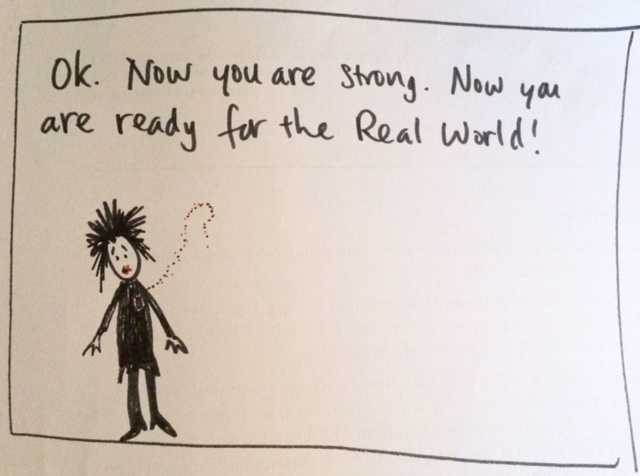 Ok. Now you are strong. Now you
are ready for the Real World!